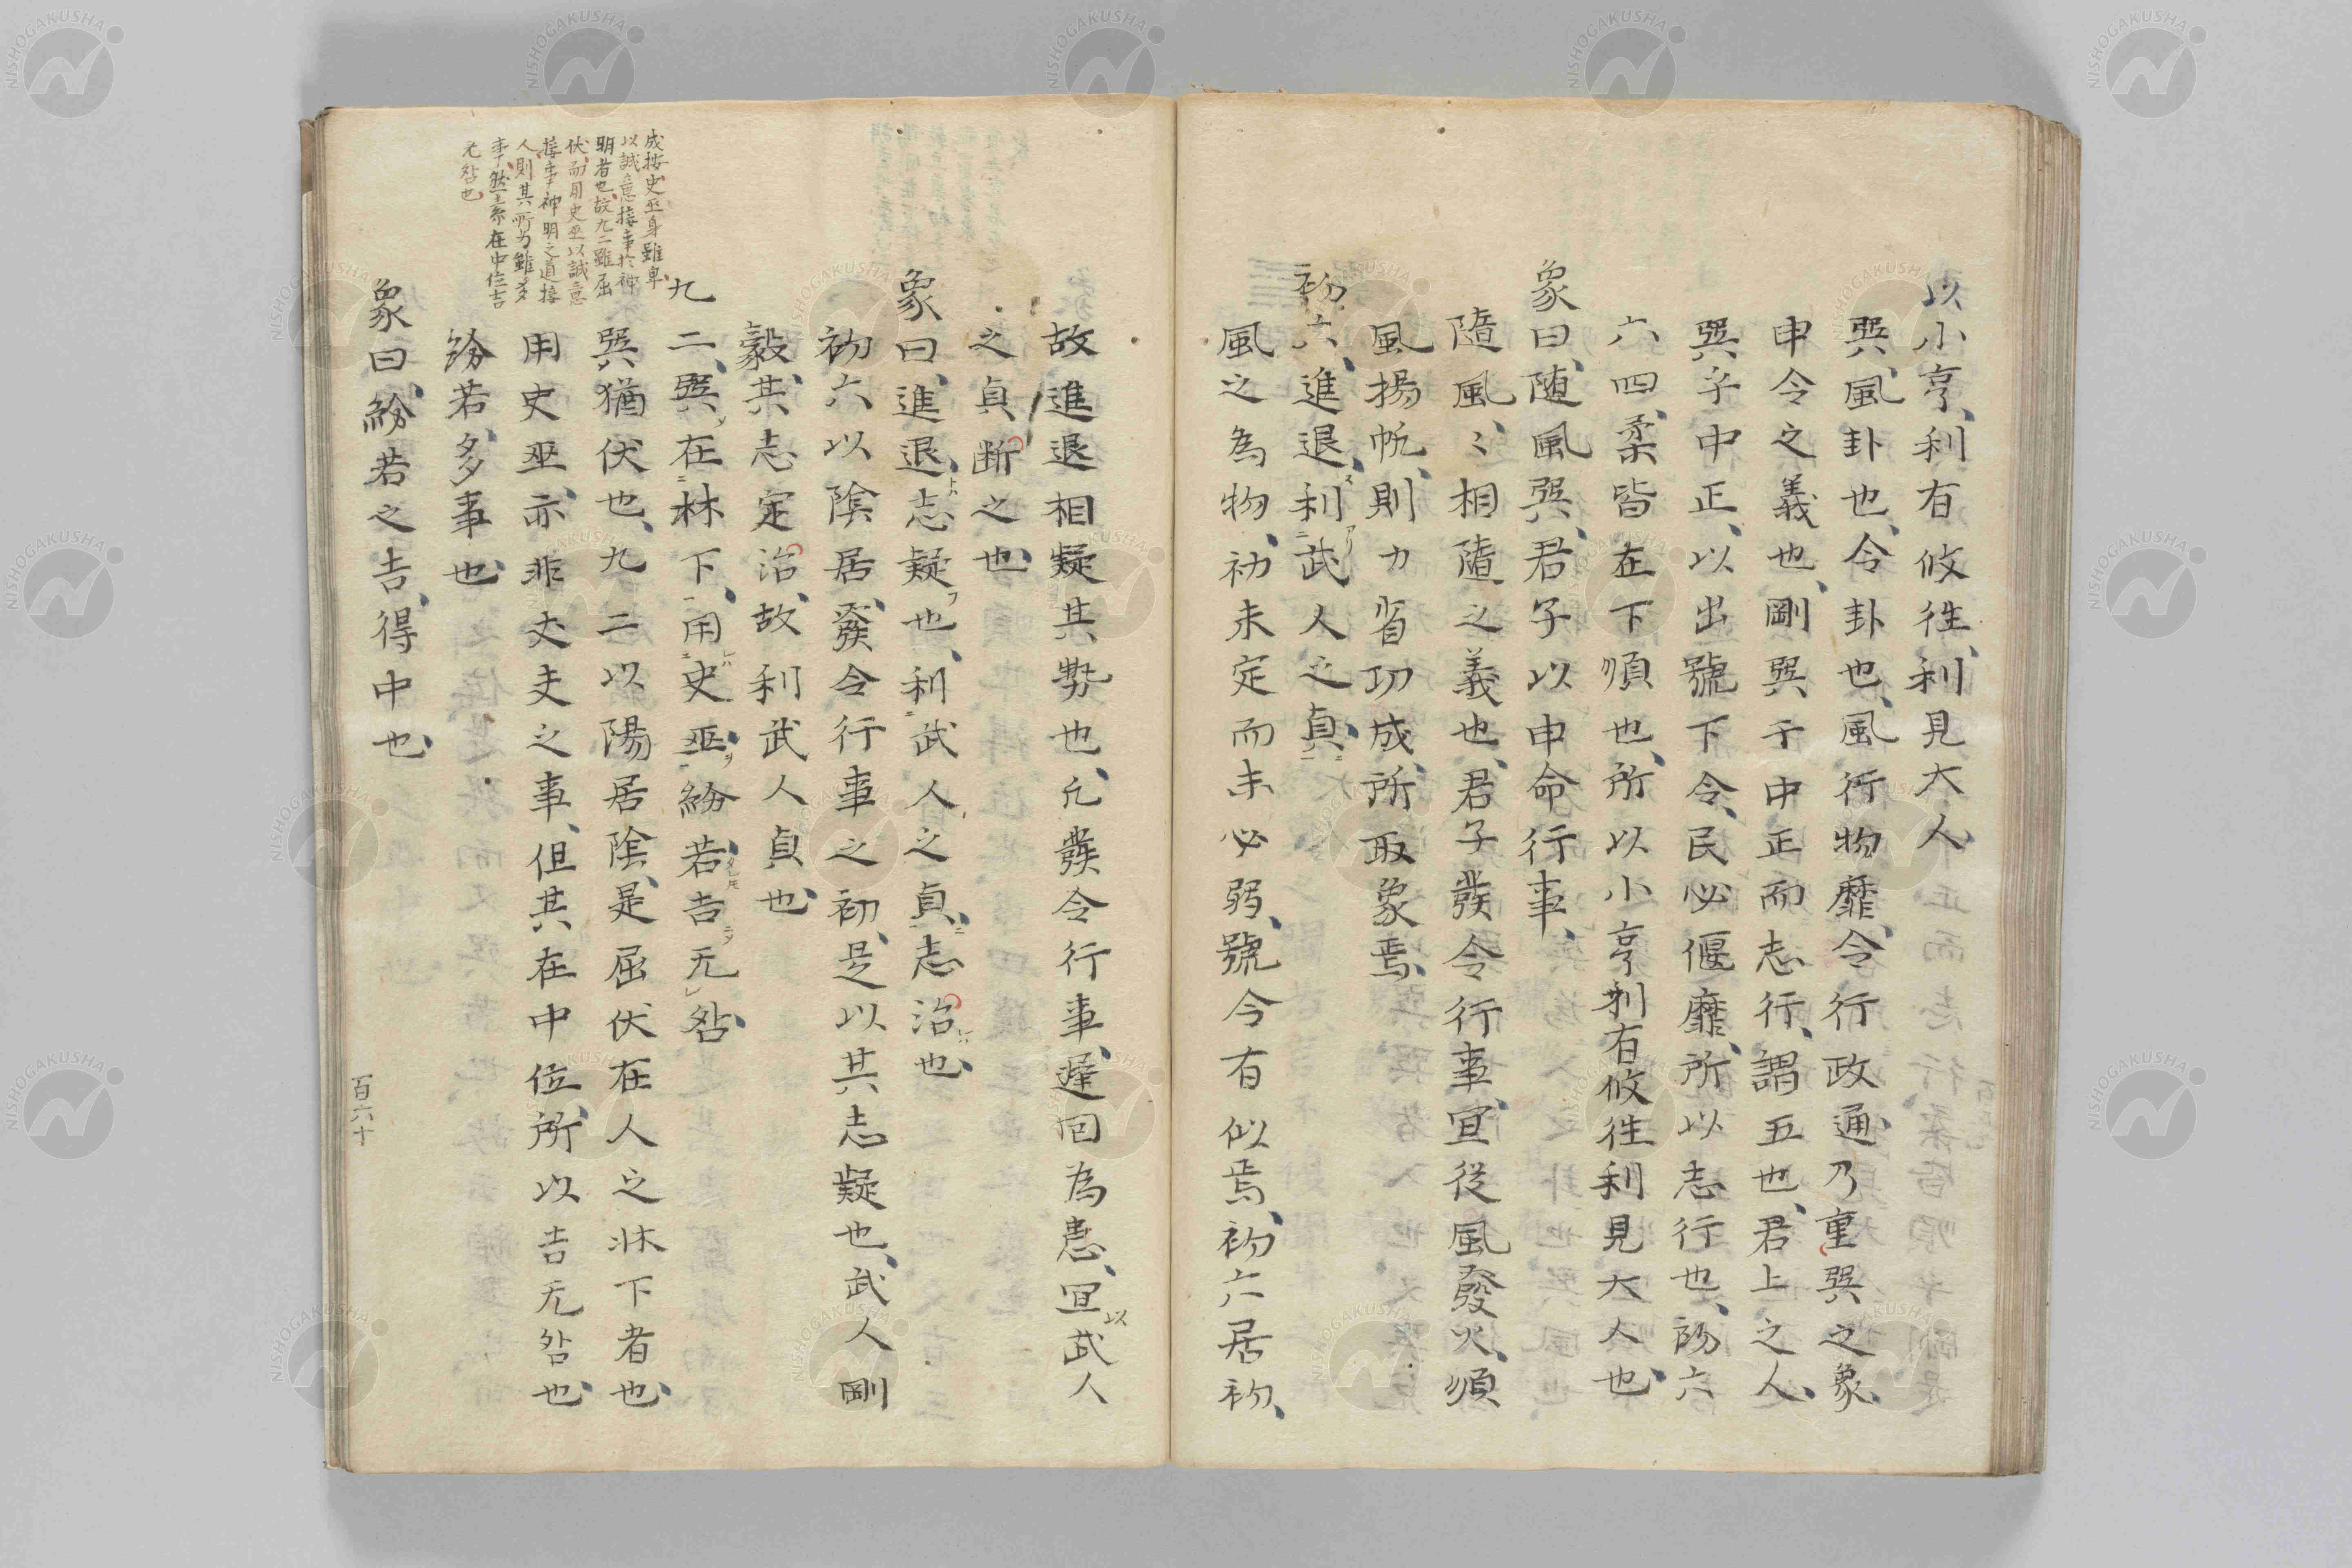 以小亨、利有攸往、利見大人、
巽、風卦也、令卦也、風行物靡、令行政通、乃重巽之象、
申令之義也、剛巽乎中正而志行、謂五也、君上之人、
巽乎中正、以出號下令、民必偃靡、所以志行也、初六
六四柔皆在下順也、所以小亨利有攸往利見大人也、
象曰、随風巽、君子以申命行事、
隨風、〻相隨之義也、君子發令行事、宜從風發火、順
風揚帆、則力省功成、所取象焉、
初六、進退、利武人之貞、
風之為物、初未定而未必弱、號令有似焉、初六居初、
故進退相疑其勢也、凡發令行事、遲回為患、宜以武人
之貞斷之也、
象曰、進退、志疑也、利武人之貞、志治也、
初六以陰居、發令行事之初、是以其志疑也、武人剛
毅、其志定治、故利武人貞也、
九二、巽在牀下、用史巫、紛若、吉无咎、
巽猶伏也、九二以陽居陰、是屈伏在人之牀下者也、
用史巫、亦非丈夫之事、但其在中位、所以吉无咎也、
紛若、多事也、
象曰、紛若之吉、得中也、
成按史巫身雖卑、
以誠意接事於神
明者也、故九二雖屈
伏、而用史巫以誠意
接事神明之道接
人、則其所為雖多
事、然素在中位吉
无咎也、
百六十
NISHOGAKUSHA